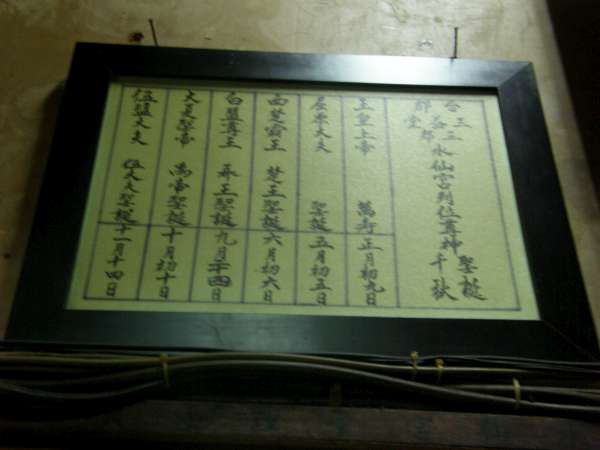 水仙宮列位尊神
聖誕
千秋
玉皇上帝 萬壽 正月初九日
屈原大夫 聖誕 五月初五日
西楚霸王 楚王聖誕 六月初六日
尊王 王聖誕 九月 四日
大夏聖帝 禹帝聖誕 十月初十日
伍 大夫 伍大夫聖誕 十一月十四日